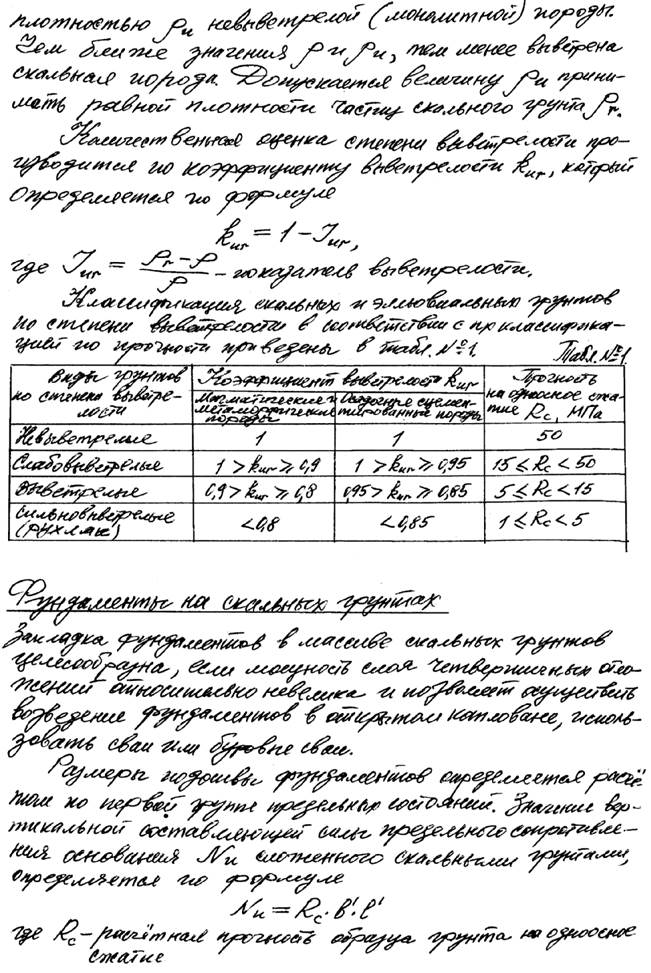 плотностью ρи невыветрелой (монолитной) породы.
Чем ближе значения ρ и ρи, тем менее выветрена
скальная порода. Допускается величину ρи прини-
мать равной плотности частиц скального грунта ρr.
Количественная оценка степени выветрелости про-
изводится по коэффициенту выветрелости kwr, который
определяется по формуле
kwr = 1 - Iwr,
где Iwr = (ρr - ρ)/ρ - показатель выветрелости.
Классификация скальных и элювиальных грунтов
по степени выветрелости в соответствии с
цией по прочности приведены в табл. №1.
Табл. №1.
Виды грунтов по степени выветре-лости | Коэффициент выветрелости kwr | Прочность на одноосное сжа-тие Rc, МПа
Магматические и метаморфические породы | Осадочные сцемен-тированные породы
Невыветрелые | 1 | 1 | 50
Слабовыветрелые | 1 > kwr ⩾ 0,9 | 1 > kwr ⩾ 0,95 | 15 ⩽ Rc < 50
Выветрелые | 0,9 > kwr ⩾ 0,8 | 0,95 > kwr ⩾ 0,85 | 5 ⩽ Rc < 15
Сильновыветрелые (рухляк) | < 0,8 | < 0,85 | 1 ⩽ Rc < 5
Фундаменты на скальных грунтах
Закладка фундаментов в массиве скальных грунтов
целесообразна, если мощность слоя четвертичных отло-
жений относительно невелика и позволяет осуществить
возведение фундаментов в открытом котловане, исполь-
зовать сваи или буровые сваи.
Размеры подошвы фундаментов определяется расчё-
том по первой группе предельных состояний. Значение вер-
тикальной составляющей силы предельного сопротивле-
ния основания Nи сложенного скальными грунтами,
определяется по формуле
Nи = Rc · b' · l'
где Rc - расчётная прочность образца грунта на одноосное
сжатие